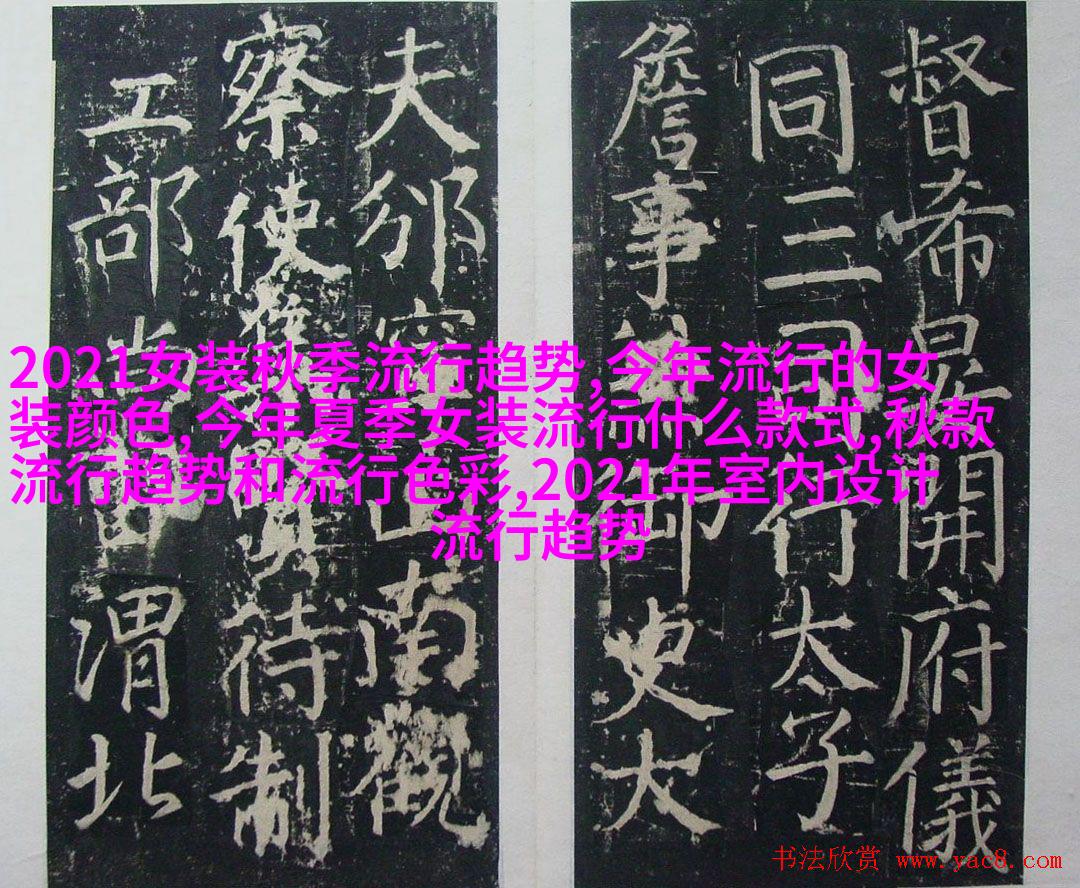 督希晏開府儀
同三司行太子
詹事兼御史大
夫邠寧山南觀
察使集賢待制
工部尚書渭北
2021女装秋季流行趋势,今年流行的女
装颜色,今年夏季女装流行什么款式,秋款
流行趋势和流行色彩,2021年室内设计
流行趋势
书法欣赏 www.yac8.com